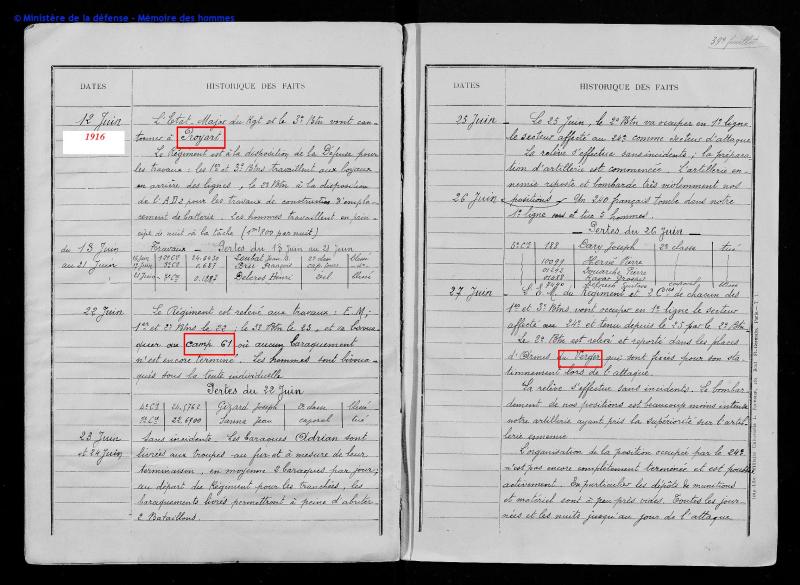 © Ministère de la défense - Mémoire des hommes
39e feuillet
DATES HISTORIQUE DES FAITS
12 Juin
1916
L'Etat-Major du Rgt et le 3e Btn vont can-
tonner à Proyart.
Le Régiment est à la disposition de la Défense pour
les travaux : les 1er et 3e Btns travaillent aux boyaux
en arrière des lignes ; le 2e Btn à la disposition
de l'AD2 pour les travaux de construction d'empla-
cement de batterie. Les hommes travaillent en prin-
cipe de nuit à la tâche (1m 800 par nuit)
du 13 Juin
au 21 Juin
Travaux - Pertes du 13 Juin au 21 Juin
Loubat Jean
Béléros Henri
22 Juin
Le Régiment est relevé aux travaux : E.M,
1er et 2e Btns le 22 ; le 3e Btn le 23, et va bivoua-
quer au camp 61 où aucun baraquement
n'est encore terminé. Les hommes sont bivoua-
qués sous la tente individuelle.
Pertes du 22 Juin
Gézard Joseph blessé
Jean caporal tué
23 Juin
et 24 Juin
Sans incidents. Les baraques Adrian sont
livrées aux troupes au fur et à mesure de leur
terminaison, en moyenne 2 baraques par jour ;
au départ du Régiment pour les tranchées, les
baraquements livrés permettront à peine d'abriter
2 Bataillons.
DATES HISTORIQUE DES FAITS
25 Juin
Le 25 Juin, le 2e Btn va occuper en 1e ligne
le secteur affecté au 24e comme secteur d'attaque
La relève s'effectue sans incidents ; la prépara-
tion d'artillerie est commencée. L'artillerie en-
nemie riposte et bombarde très violemment nos
26 Juin
positions. Un 240 français tombe dans notre
1e ligne et tue 5 hommes.
Pertes du 26 Juin
5e Cie 188 Dary Joseph 2e classe tué
10099 Hervé Pierre
Pierre
27 Juin
L'E.M du Régiment et 2 Cies de chacun des
1er et 3e Btns vont occuper en 1e ligne le secteur
affecté au 24e et tenu depuis le 25 par le 2e Btn.
Le 2e Btn est relevé et reporté dans les places
d'Armes du Verger qui sont fixées pour son sta-
tionnement lors de l'attaque.
La relève s'effectue sans incidents. Le bombar-
dement de nos positions est beaucoup moins intense
notre artillerie ayant pris la supériorité sur l'artil-
lerie ennemie.
L'organisation de la position occupée par le 24e
n'est pas encore complètement terminée et est poussée
activement. En particulier les dépôts de munitions
et matériel sont à peu près vides. Toutes les jour-
nées et les nuits jusqu'au jour de l'attaque